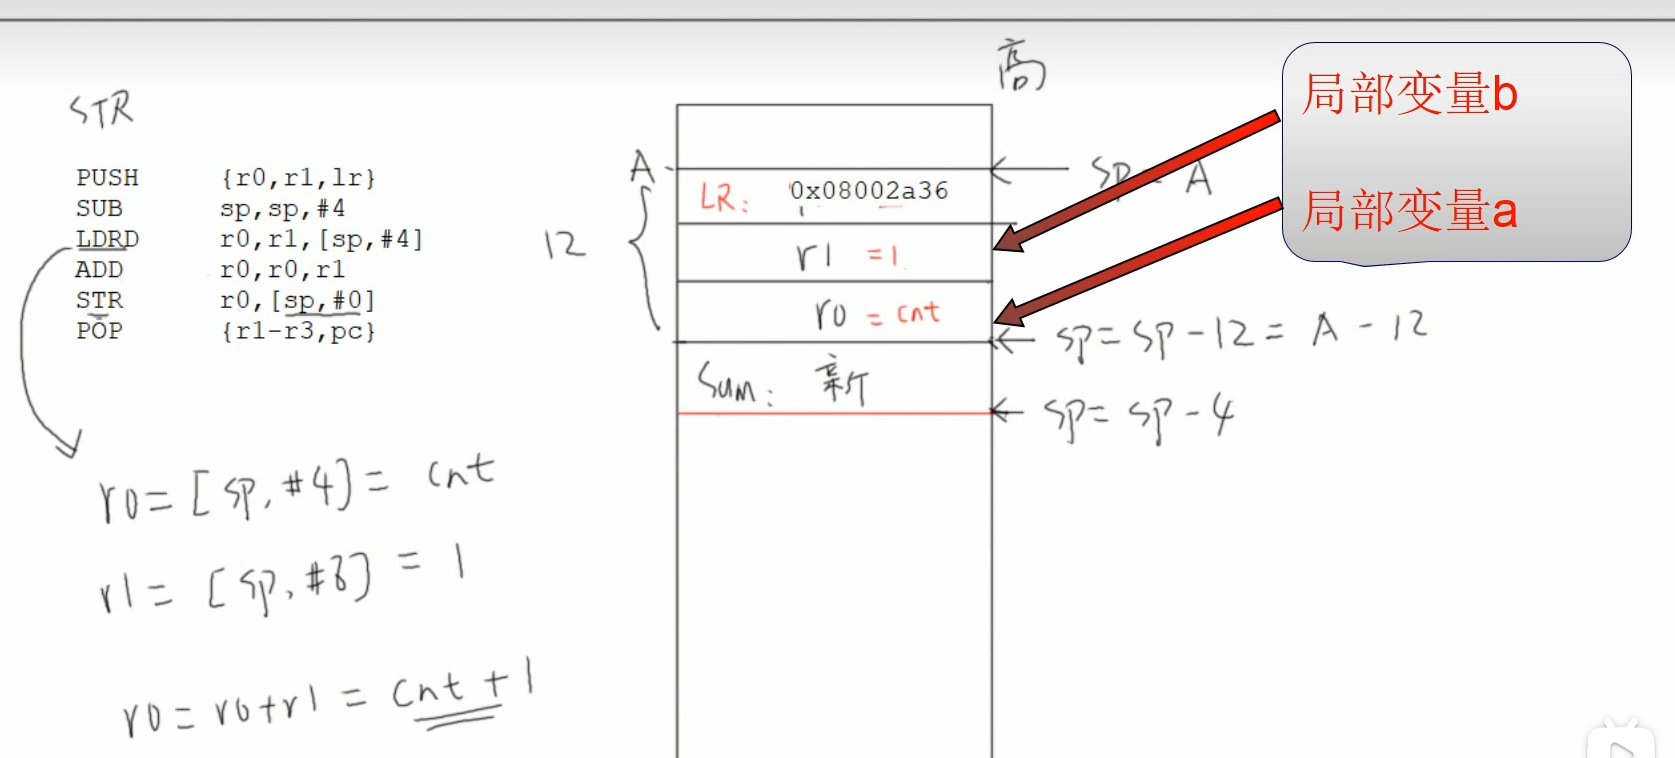 STR
PUSH {r0,r1,lr}
SUB sp,sp,#4
LDRD r0,r1,[sp,#4]
ADD r0,r0,r1
STR r0,[sp,#0]
POP {r1-r3,pc}
r0=[sp,#4]= cnt
r1=[sp,#8] = 1
r0=r0+r1 = cnt+1
高
A
12
LR: 0x08002a36
r1 =1
r0 = cnt
Sum: 新
sp= A
sp=sp-12= A-12
sp=sp-4
局部变量b
局部变量a